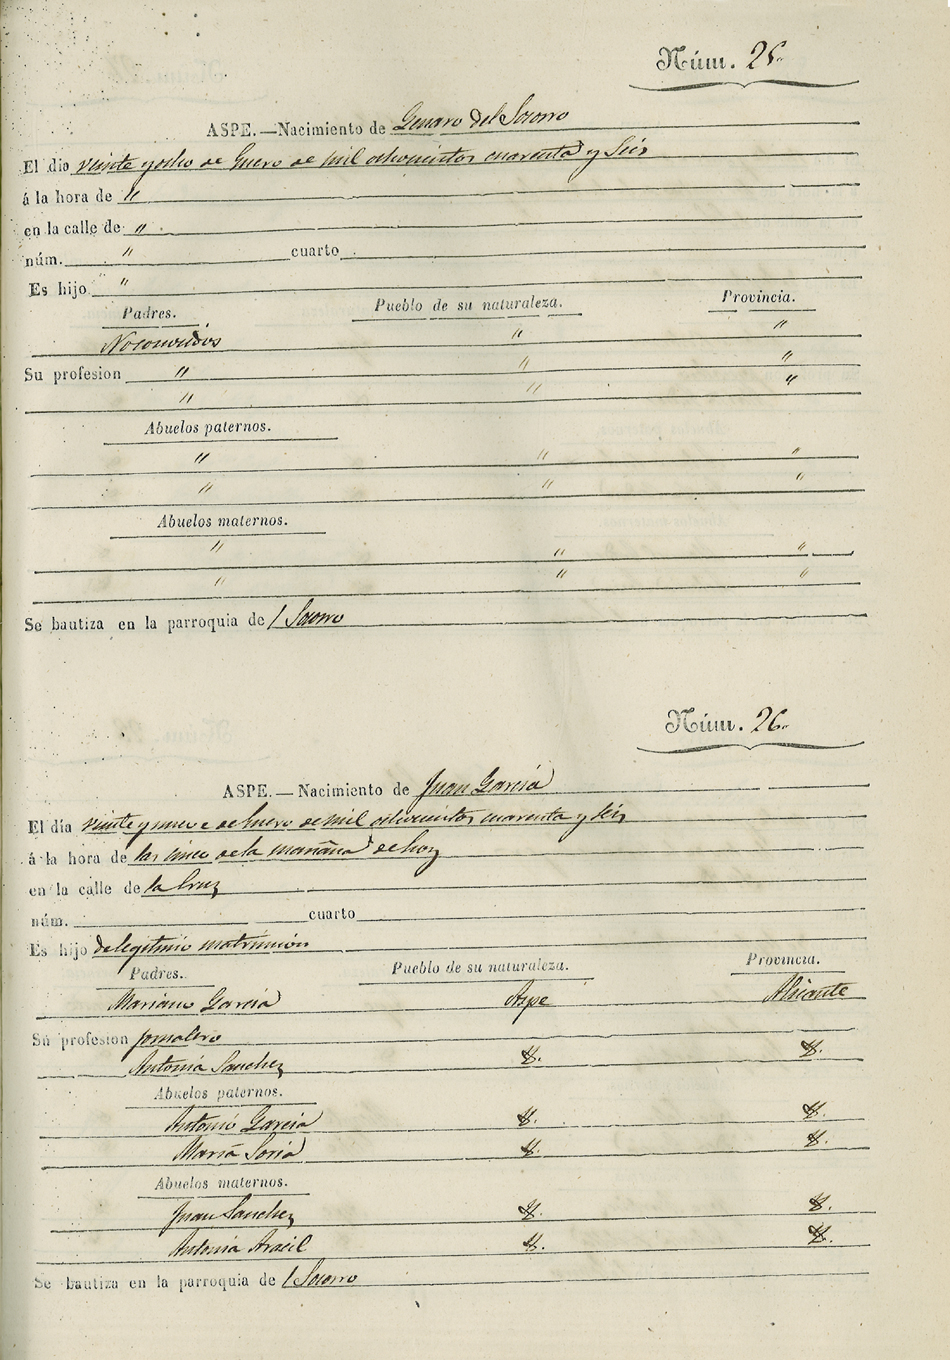 Núm. 25.
ASPE.—Nacimiento de Genaro del Socorro
El dio veinte y ocho de Enero de mil ochocientos cuarenta y Seis
á la hora de "
en la calle de "
núm. " cuarto
Es hijo "
Padres. Pueblo de su naturaleza. Provincia.
No conocidos " "
Su profesion " " "
" " "
Abuelos paternos.
" " "
" " "
Abuelos maternos.
" " "
" " "
Se bautiza en la parroquia del Socorro
Núm. 26.
ASPE.—Nacimiento de Juan García
El día veinte y nueve de Enero de mil ochocientos cuarenta y seis
á la hora de las cinco de la mañana de hoy
en la calle de la Cruz
núm. cuarto
Es hijo de legitimo matrimonio
Padres. Pueblo de su naturaleza. Provincia.
Mariano García Aspe Alicante
Su profesion jornalero
Antonia Sanchez
Abuelos paternos.
Antonio García
María Soria
Abuelos maternos.
Juan Sanchez
Antonia Aracil
Se bautiza en la parroquia del Socorro